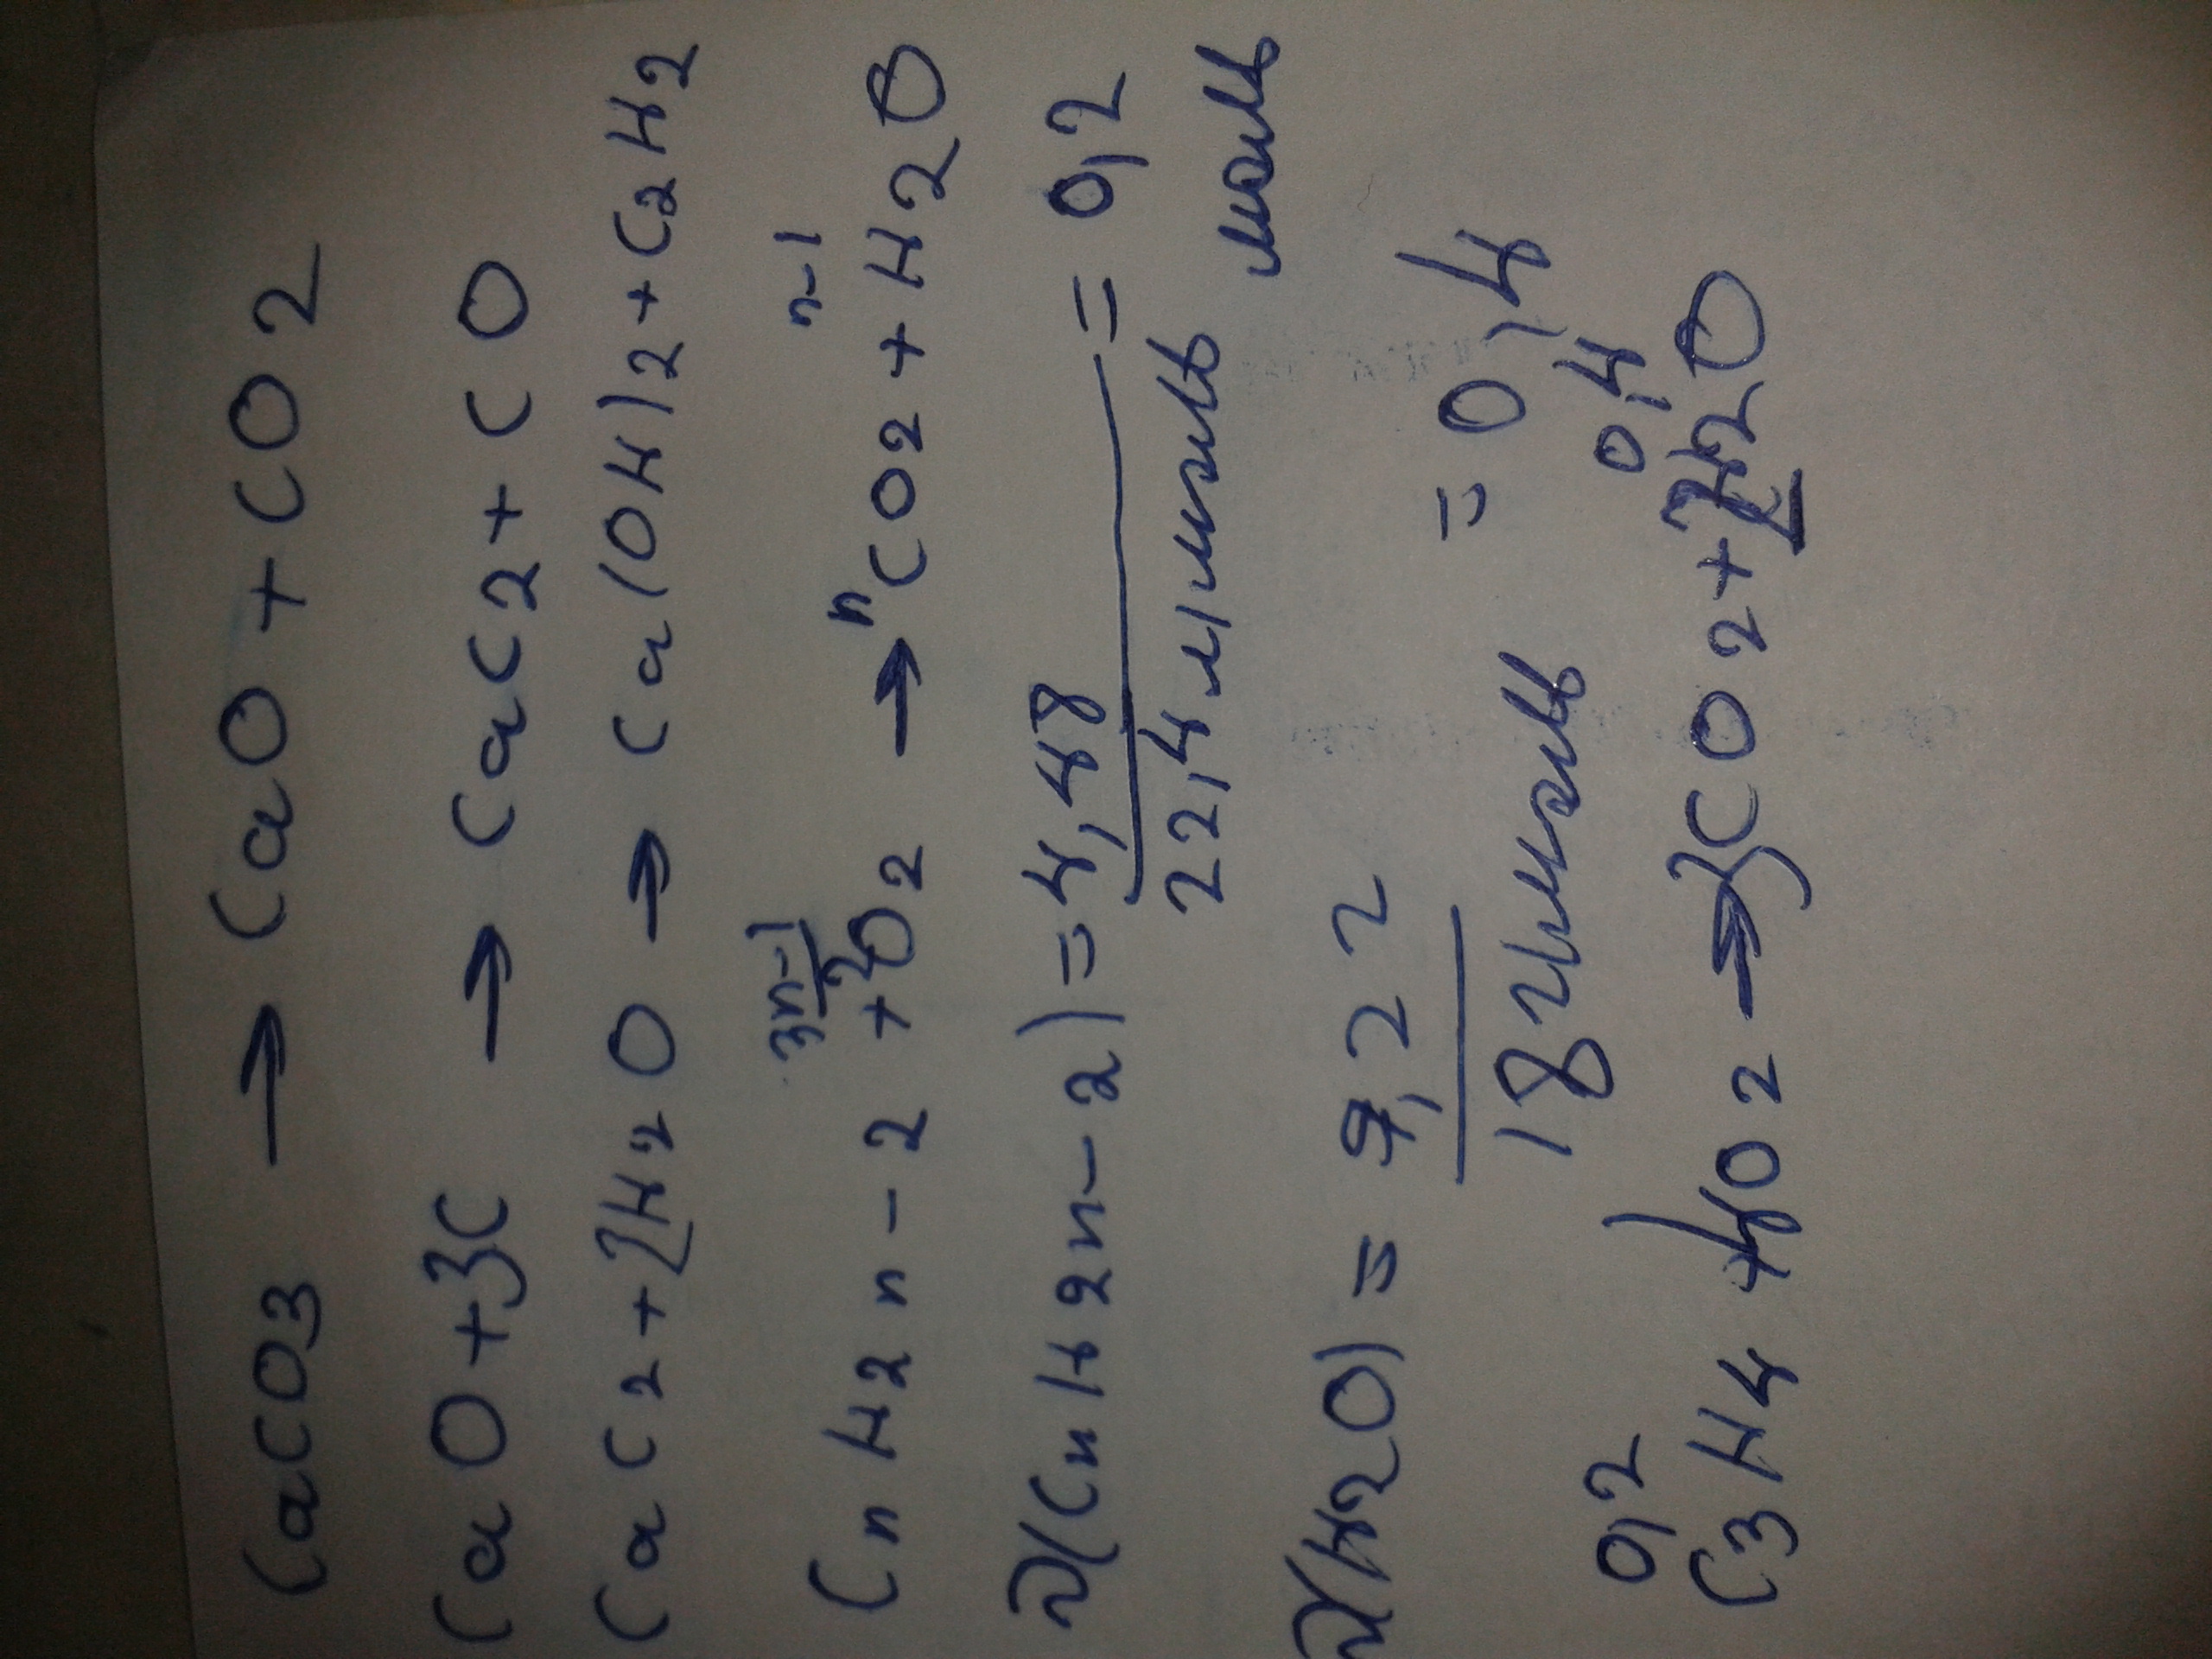 CaCO3 → CaO + CO2
CaO + 3C → CaC2 + CO
CaC2 + 2H2O → Ca(OH)2 + C2H2
3n-1 n-1
CnH2n-2 + 2 O2 → nCO2 + H2O
ν(CnH2n-2) = 4,48 = 0,2
22,4 л/моль моль
ν(H2O) = 7,22 = 0,4
18 г/моль
0,2 0,4
C3H4 + 4O2 → 3CO2 + 2H2O